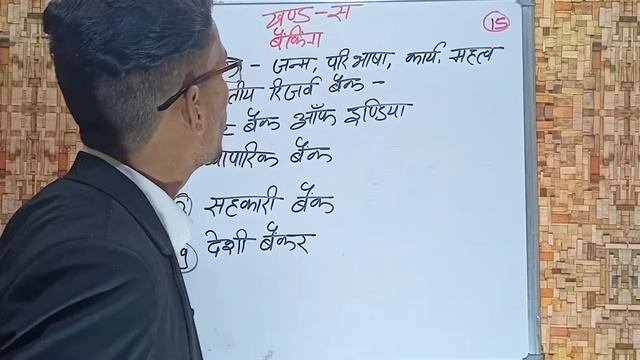 खण्ड - स
15
बैंकिंग
- जन्म, परिभाषा, कार्य, महत्व
रिजर्व बैंक -
बैंक ऑफ इण्डिया
बैंक
सहकारी बैंक
9 देशी बैंकर